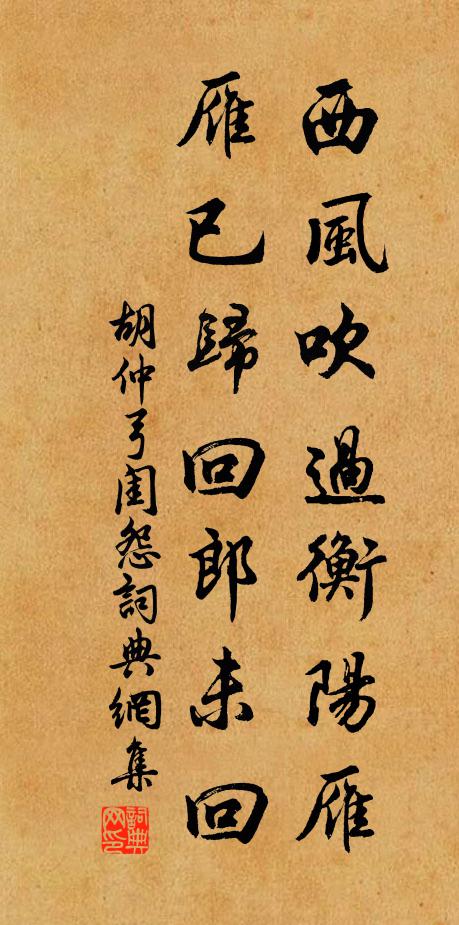 西風吹過衡陽雁
雁已歸回郎未回
胡仲弓閨怨詞典網集
詞典网印